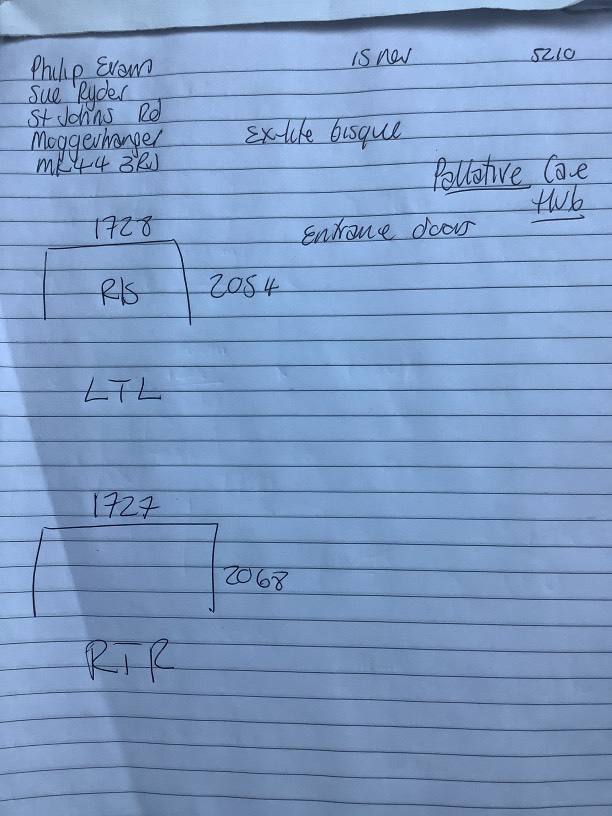 Philip Evans
Sue Ryder
St Johns Rd
Moggerhanger
MK44 3RJ
5210
Exlite bisque
Pallative Care
Hub
Entrance doors
1728
R/S
2054
LTL
1727
2068
RTR